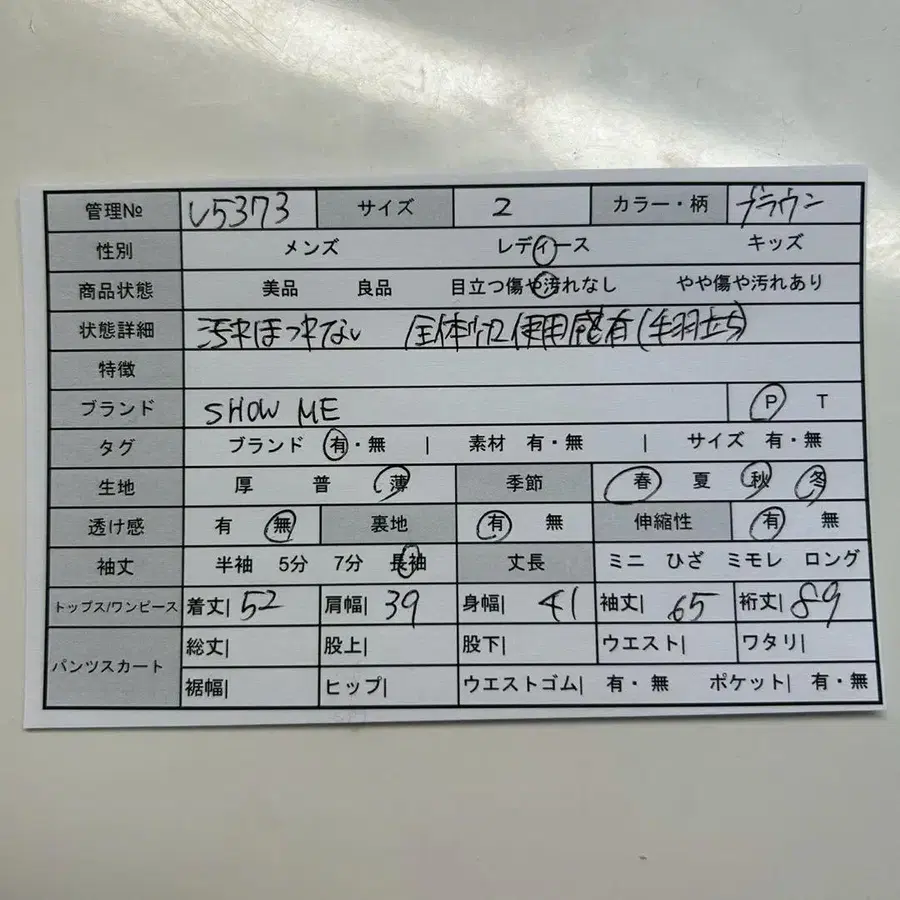 管理№ V5373 サイズ 2 カラー・柄 ブラウン
性別 メンズ レディース キッズ
商品状態 美品 良品 目立つ傷や汚れなし やや傷や汚れあり
状態詳細 汚れほつれない 全体的に使用感有(毛羽立ち)
特徴
ブランド SHOW ME P T
タグ ブランド 有・無 | 素材 有・無 | サイズ 有・無
生地 厚 普 薄 季節 春 夏 秋 冬
透け感 有 無 裏地 有 無 伸縮性 有 無
袖丈 半袖 5分 7分 長袖 丈長 ミニ ひざ ミモレ ロング
トップス/ワンピース 着丈| 52 肩幅| 39 身幅| 41 袖丈| 65 裄丈| 89
パンツスカート 総丈| 股上| 股下| ウエスト| ワタリ|
裾幅| ヒップ| ウエストゴム| 有・無 ポケット| 有・無